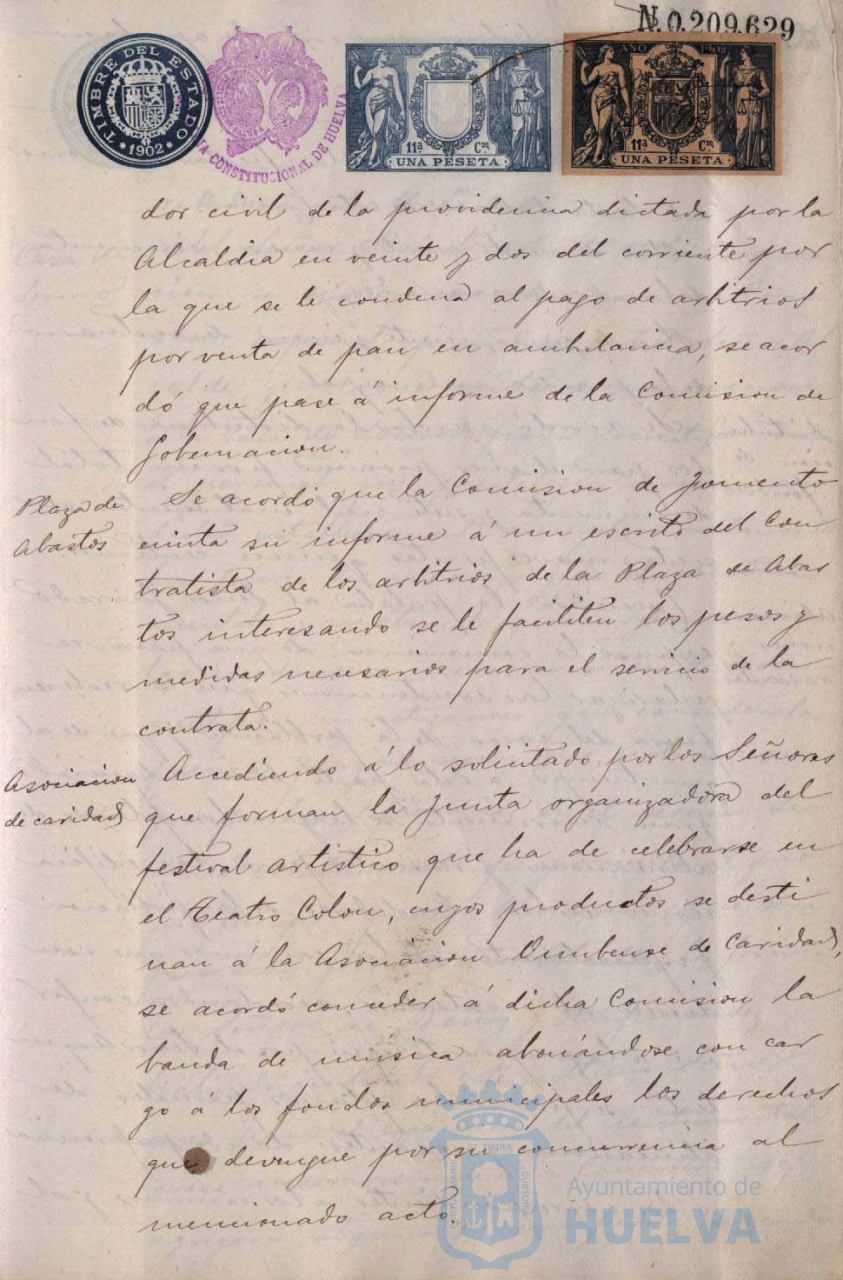 N. 0.209.629
TIMBRE DEL ESTADO
*1902*
CONSTITUCIONAL DE HUELVA
AÑO 1902
11ª Cse
UNA PESETA
AÑO 1902
11ª Cse
UNA PESETA
dor civil de la providencia dictada por la
Alcaldia en veinte y dos del corriente por
la que se le condena al pago de arbitrios
por venta de pan en ambulancia, se acor
dó que pase á informe de la Comision de
Gobernacion.
Plaza de
Abastos
Se acordó que la Comision de Fomento
emita su informe á un escrito del Con
tratista de los arbitrios de la Plaza de Abas
tos interesando se le faciliten los pesos y
medidas necesarios para el servicio de la
contrata.
Asociacion
de caridad
Accediendo á lo solicitado por los Señoras
que forman la Junta organizadora del
festival artistico que ha de celebrarse en
el Teatro Colon, cuyos productos se desti
nan á la Asociacion Onubense de Caridad,
se acordó conceder á dicha Comision la
banda de música abonándose con car
go á los fondos municipales los derechos
que devengue por su concurrencia al
mencionado acto.
Ayuntamiento de
HUELVA